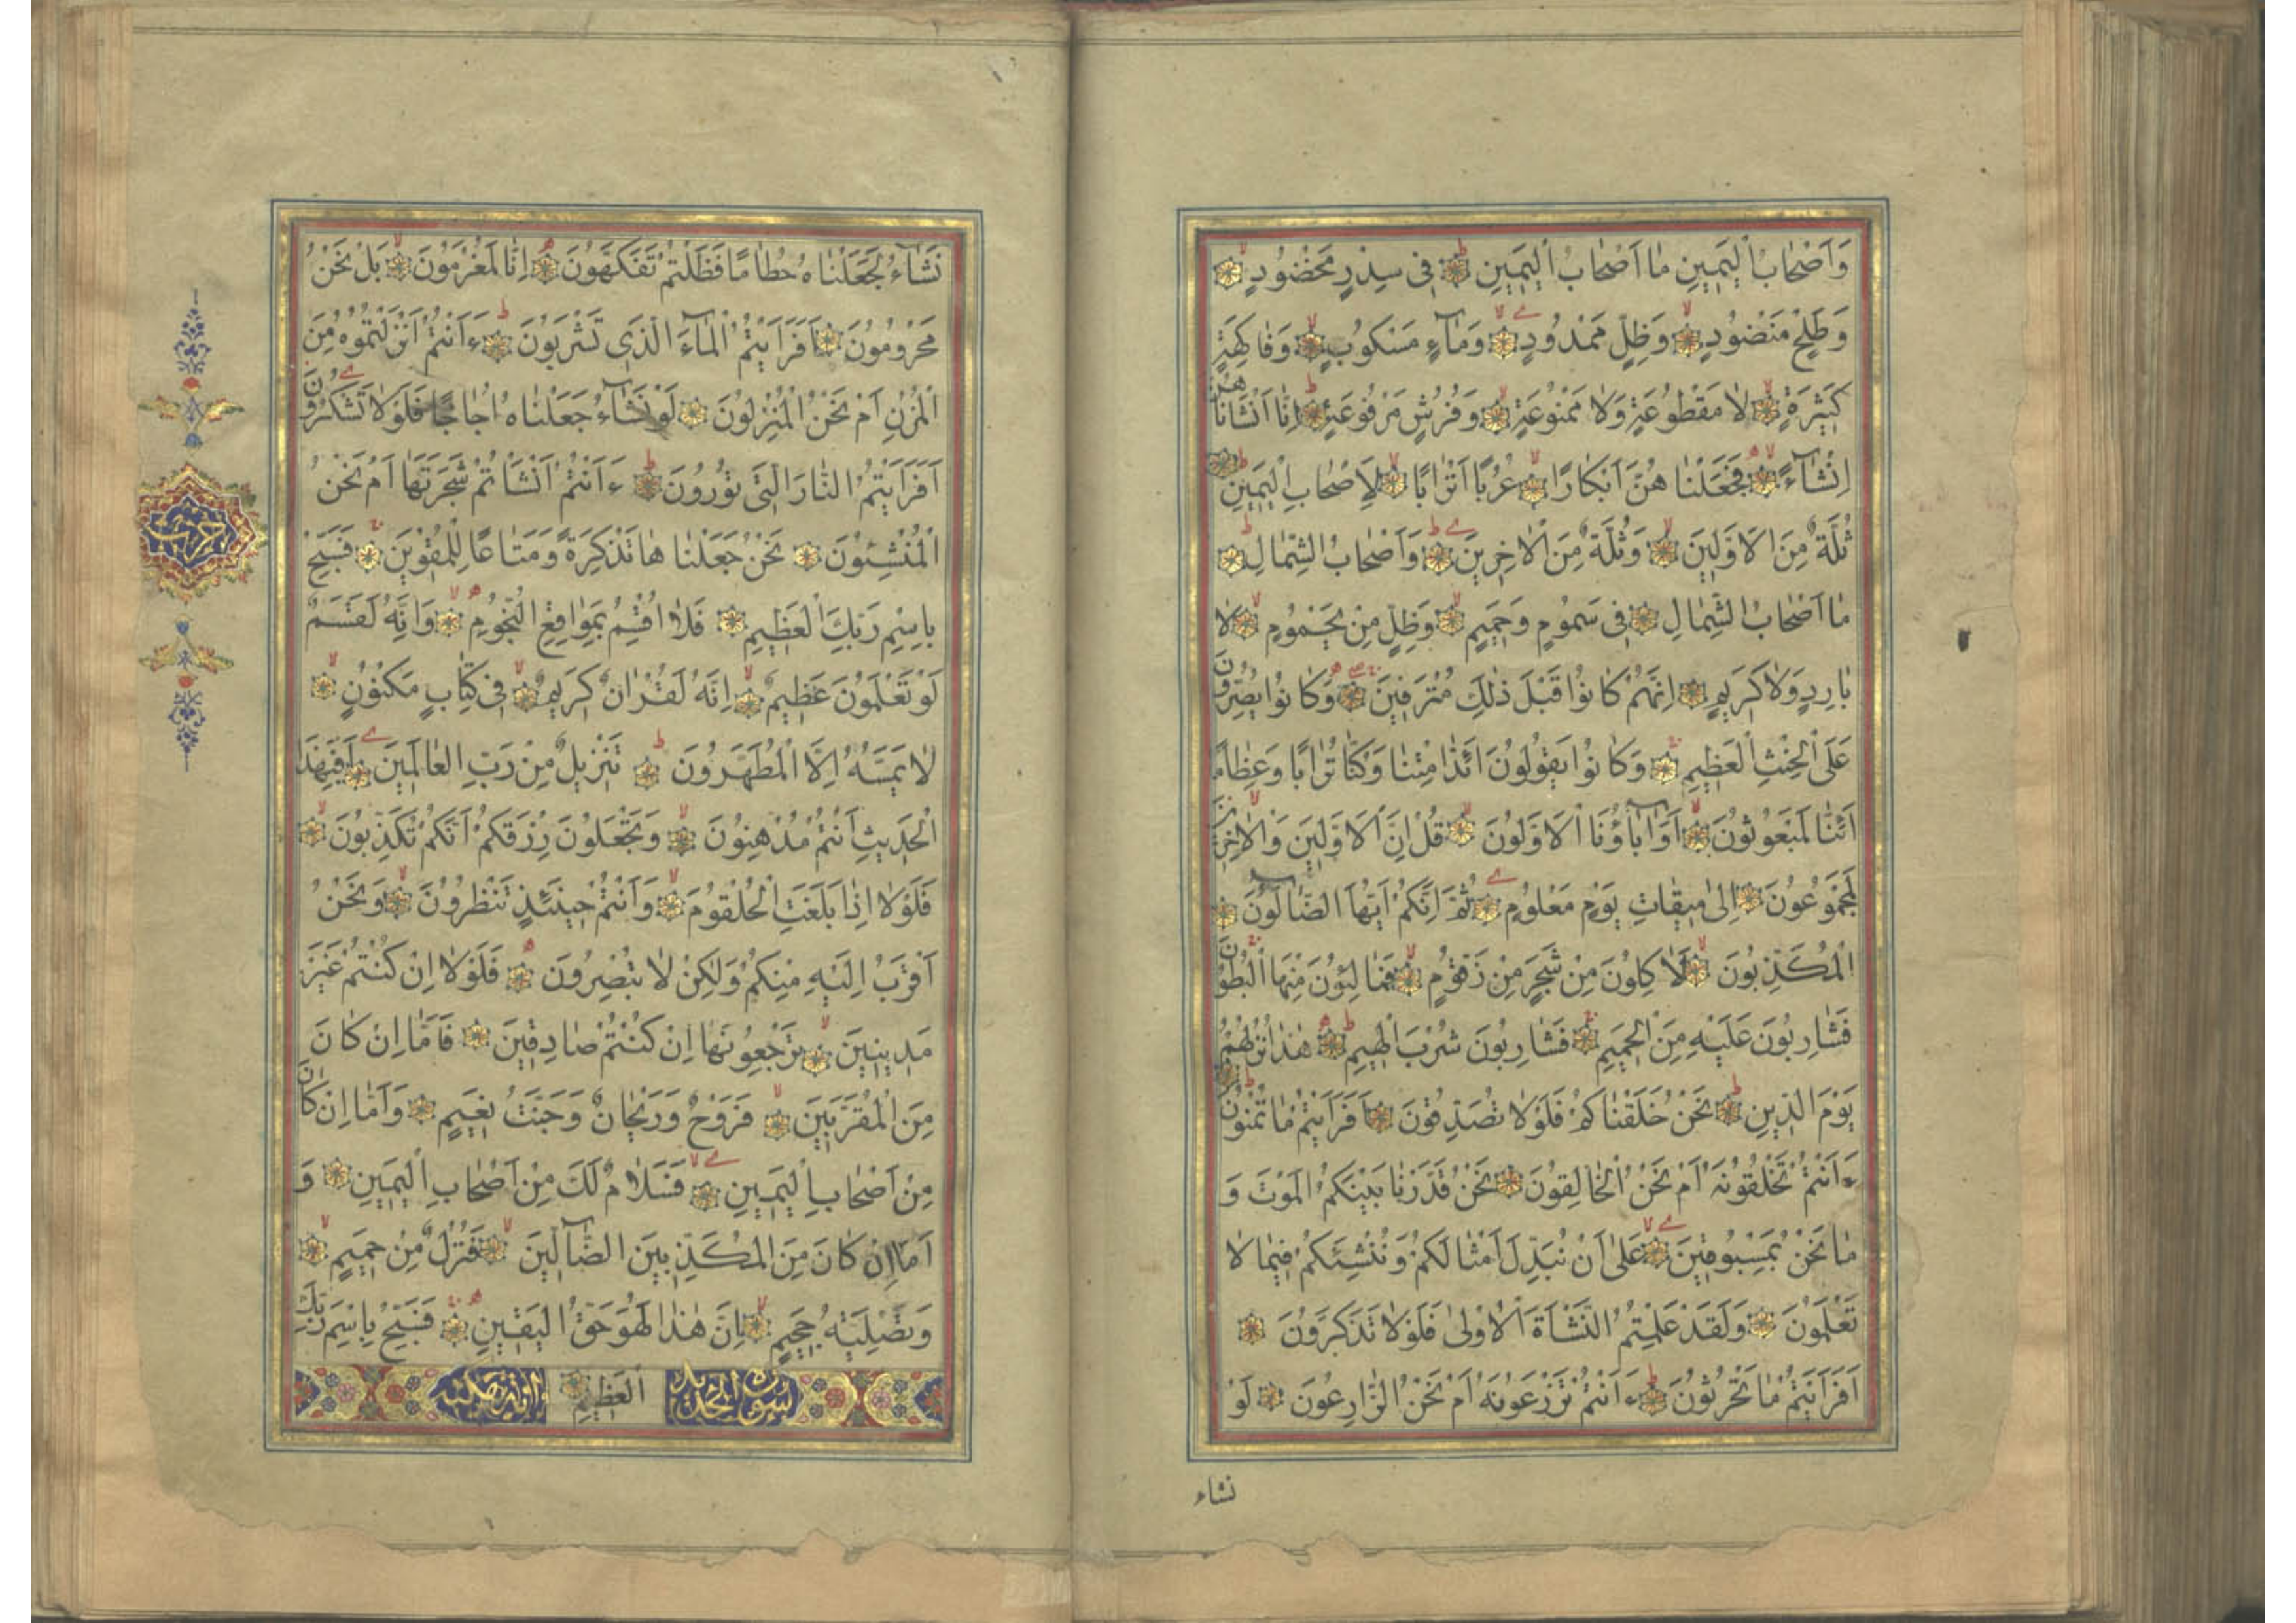 وَاَصْحَابُ الْيَمِينِ مَا اَصْحَابُ الْيَمِينِ فِي سِدْرٍ مَخْضُودٍ
وَطَلْحٍ مَنْضُودٍ وَظِلٍّ مَمْدُودٍ وَمَاءٍ مَسْكُوبٍ وَفَاكِهَةٍ
كَثِيرَةٍ لَا مَقْطُوعَةٍ وَلَا مَمْنُوعَةٍ وَفُرُشٍ مَرْفُوعَةٍ اِنَّا اَنْشَأْنَاهُنَّ
اِنْشَاءً فَجَعَلْنَاهُنَّ اَبْكَارًا عُرُبًا اَتْرَابًا لِاَصْحَابِ الْيَمِينِ
ثُلَّةٌ مِنَ الْاَوَّلِينَ وَثُلَّةٌ مِنَ الْاٰخِرِينَ وَاَصْحَابُ الشِّمَالِ
مَا اَصْحَابُ الشِّمَالِ فِي سَمُومٍ وَحَمِيمٍ وَظِلٍّ مِنْ يَحْمُومٍ لَا
بَارِدٍ وَلَا كَرِيمٍ اِنَّهُمْ كَانُوا قَبْلَ ذٰلِكَ مُتْرَفِينَ وَكَانُوا يُصِرُّونَ
عَلَى الْحِنْثِ الْعَظِيمِ وَكَانُوا يَقُولُونَ اَئِذَا مِتْنَا وَكُنَّا تُرَابًا وَعِظَامًا
اَئِنَّا لَمَبْعُوثُونَ اَوَاٰبَاؤُنَا الْاَوَّلُونَ قُلْ اِنَّ الْاَوَّلِينَ وَالْاٰخِرِينَ
لَمَجْمُوعُونَ اِلٰى مِيقَاتِ يَوْمٍ مَعْلُومٍ ثُمَّ اِنَّكُمْ اَيُّهَا الضَّالُّونَ
الْمُكَذِّبُونَ لَاٰكِلُونَ مِنْ شَجَرٍ مِنْ زَقُّومٍ فَمَالِئُونَ مِنْهَا الْبُطُونَ
فَشَارِبُونَ عَلَيْهِ مِنَ الْحَمِيمِ فَشَارِبُونَ شُرْبَ الْهِيمِ هٰذَا نُزُلُهُمْ
يَوْمَ الدِّينِ نَحْنُ خَلَقْنَاكُمْ فَلَوْلَا تُصَدِّقُونَ اَفَرَاَيْتُمْ مَا تُمْنُونَ
ءَاَنْتُمْ تَخْلُقُونَهُ اَمْ نَحْنُ الْخَالِقُونَ نَحْنُ قَدَّرْنَا بَيْنَكُمُ الْمَوْتَ وَ
مَا نَحْنُ بِمَسْبُوقِينَ عَلٰى اَنْ نُبَدِّلَ اَمْثَالَكُمْ وَنُنْشِئَكُمْ فِيمَا لَا
تَعْلَمُونَ وَلَقَدْ عَلِمْتُمُ النَّشْاَةَ الْاُولٰى فَلَوْلَا تَذَكَّرُونَ
اَفَرَاَيْتُمْ مَا تَحْرُثُونَ ءَاَنْتُمْ تَزْرَعُونَهُ اَمْ نَحْنُ الزَّارِعُونَ لَوْ
نشاء
نَشَاءُ لَجَعَلْنَاهُ حُطَامًا فَظَلْتُمْ تَفَكَّهُونَ اِنَّا لَمُغْرَمُونَ بَلْ نَحْنُ
مَحْرُومُونَ اَفَرَاَيْتُمُ الْمَاءَ الَّذِي تَشْرَبُونَ ءَاَنْتُمْ اَنْزَلْتُمُوهُ مِنَ
الْمُزْنِ اَمْ نَحْنُ الْمُنْزِلُونَ لَوْ نَشَاءُ جَعَلْنَاهُ اُجَاجًا فَلَوْلَا تَشْكُرُونَ
اَفَرَاَيْتُمُ النَّارَ الَّتِي تُورُونَ ءَاَنْتُمْ اَنْشَأْتُمْ شَجَرَتَهَا اَمْ نَحْنُ
الْمُنْشِئُونَ نَحْنُ جَعَلْنَاهَا تَذْكِرَةً وَمَتَاعًا لِلْمُقْوِينَ فَسَبِّحْ
بِاسْمِ رَبِّكَ الْعَظِيمِ فَلَا اُقْسِمُ بِمَوَاقِعِ النُّجُومِ وَاِنَّهُ لَقَسَمٌ
لَوْ تَعْلَمُونَ عَظِيمٌ اِنَّهُ لَقُرْاٰنٌ كَرِيمٌ فِي كِتَابٍ مَكْنُونٍ
لَا يَمَسُّهُ اِلَّا الْمُطَهَّرُونَ تَنْزِيلٌ مِنْ رَبِّ الْعَالَمِينَ اَفَبِهٰذَا
الْحَدِيثِ اَنْتُمْ مُدْهِنُونَ وَتَجْعَلُونَ رِزْقَكُمْ اَنَّكُمْ تُكَذِّبُونَ
فَلَوْلَا اِذَا بَلَغَتِ الْحُلْقُومَ وَاَنْتُمْ حِينَئِذٍ تَنْظُرُونَ وَنَحْنُ
اَقْرَبُ اِلَيْهِ مِنْكُمْ وَلٰكِنْ لَا تُبْصِرُونَ فَلَوْلَا اِنْ كُنْتُمْ غَيْرَ
مَدِينِينَ تَرْجِعُونَهَا اِنْ كُنْتُمْ صَادِقِينَ فَاَمَّا اِنْ كَانَ
مِنَ الْمُقَرَّبِينَ فَرَوْحٌ وَرَيْحَانٌ وَجَنَّتُ نَعِيمٍ وَاَمَّا اِنْ كَانَ
مِنْ اَصْحَابِ الْيَمِينِ فَسَلَامٌ لَكَ مِنْ اَصْحَابِ الْيَمِينِ وَ
اَمَّا اِنْ كَانَ مِنَ الْمُكَذِّبِينَ الضَّالِّينَ فَنُزُلٌ مِنْ حَمِيمٍ
وَتَصْلِيَةُ جَحِيمٍ اِنَّ هٰذَا لَهُوَ حَقُّ الْيَقِينِ فَسَبِّحْ بِاسْمِ رَبِّكَ
سورة الحديد الْعَظِيمِ